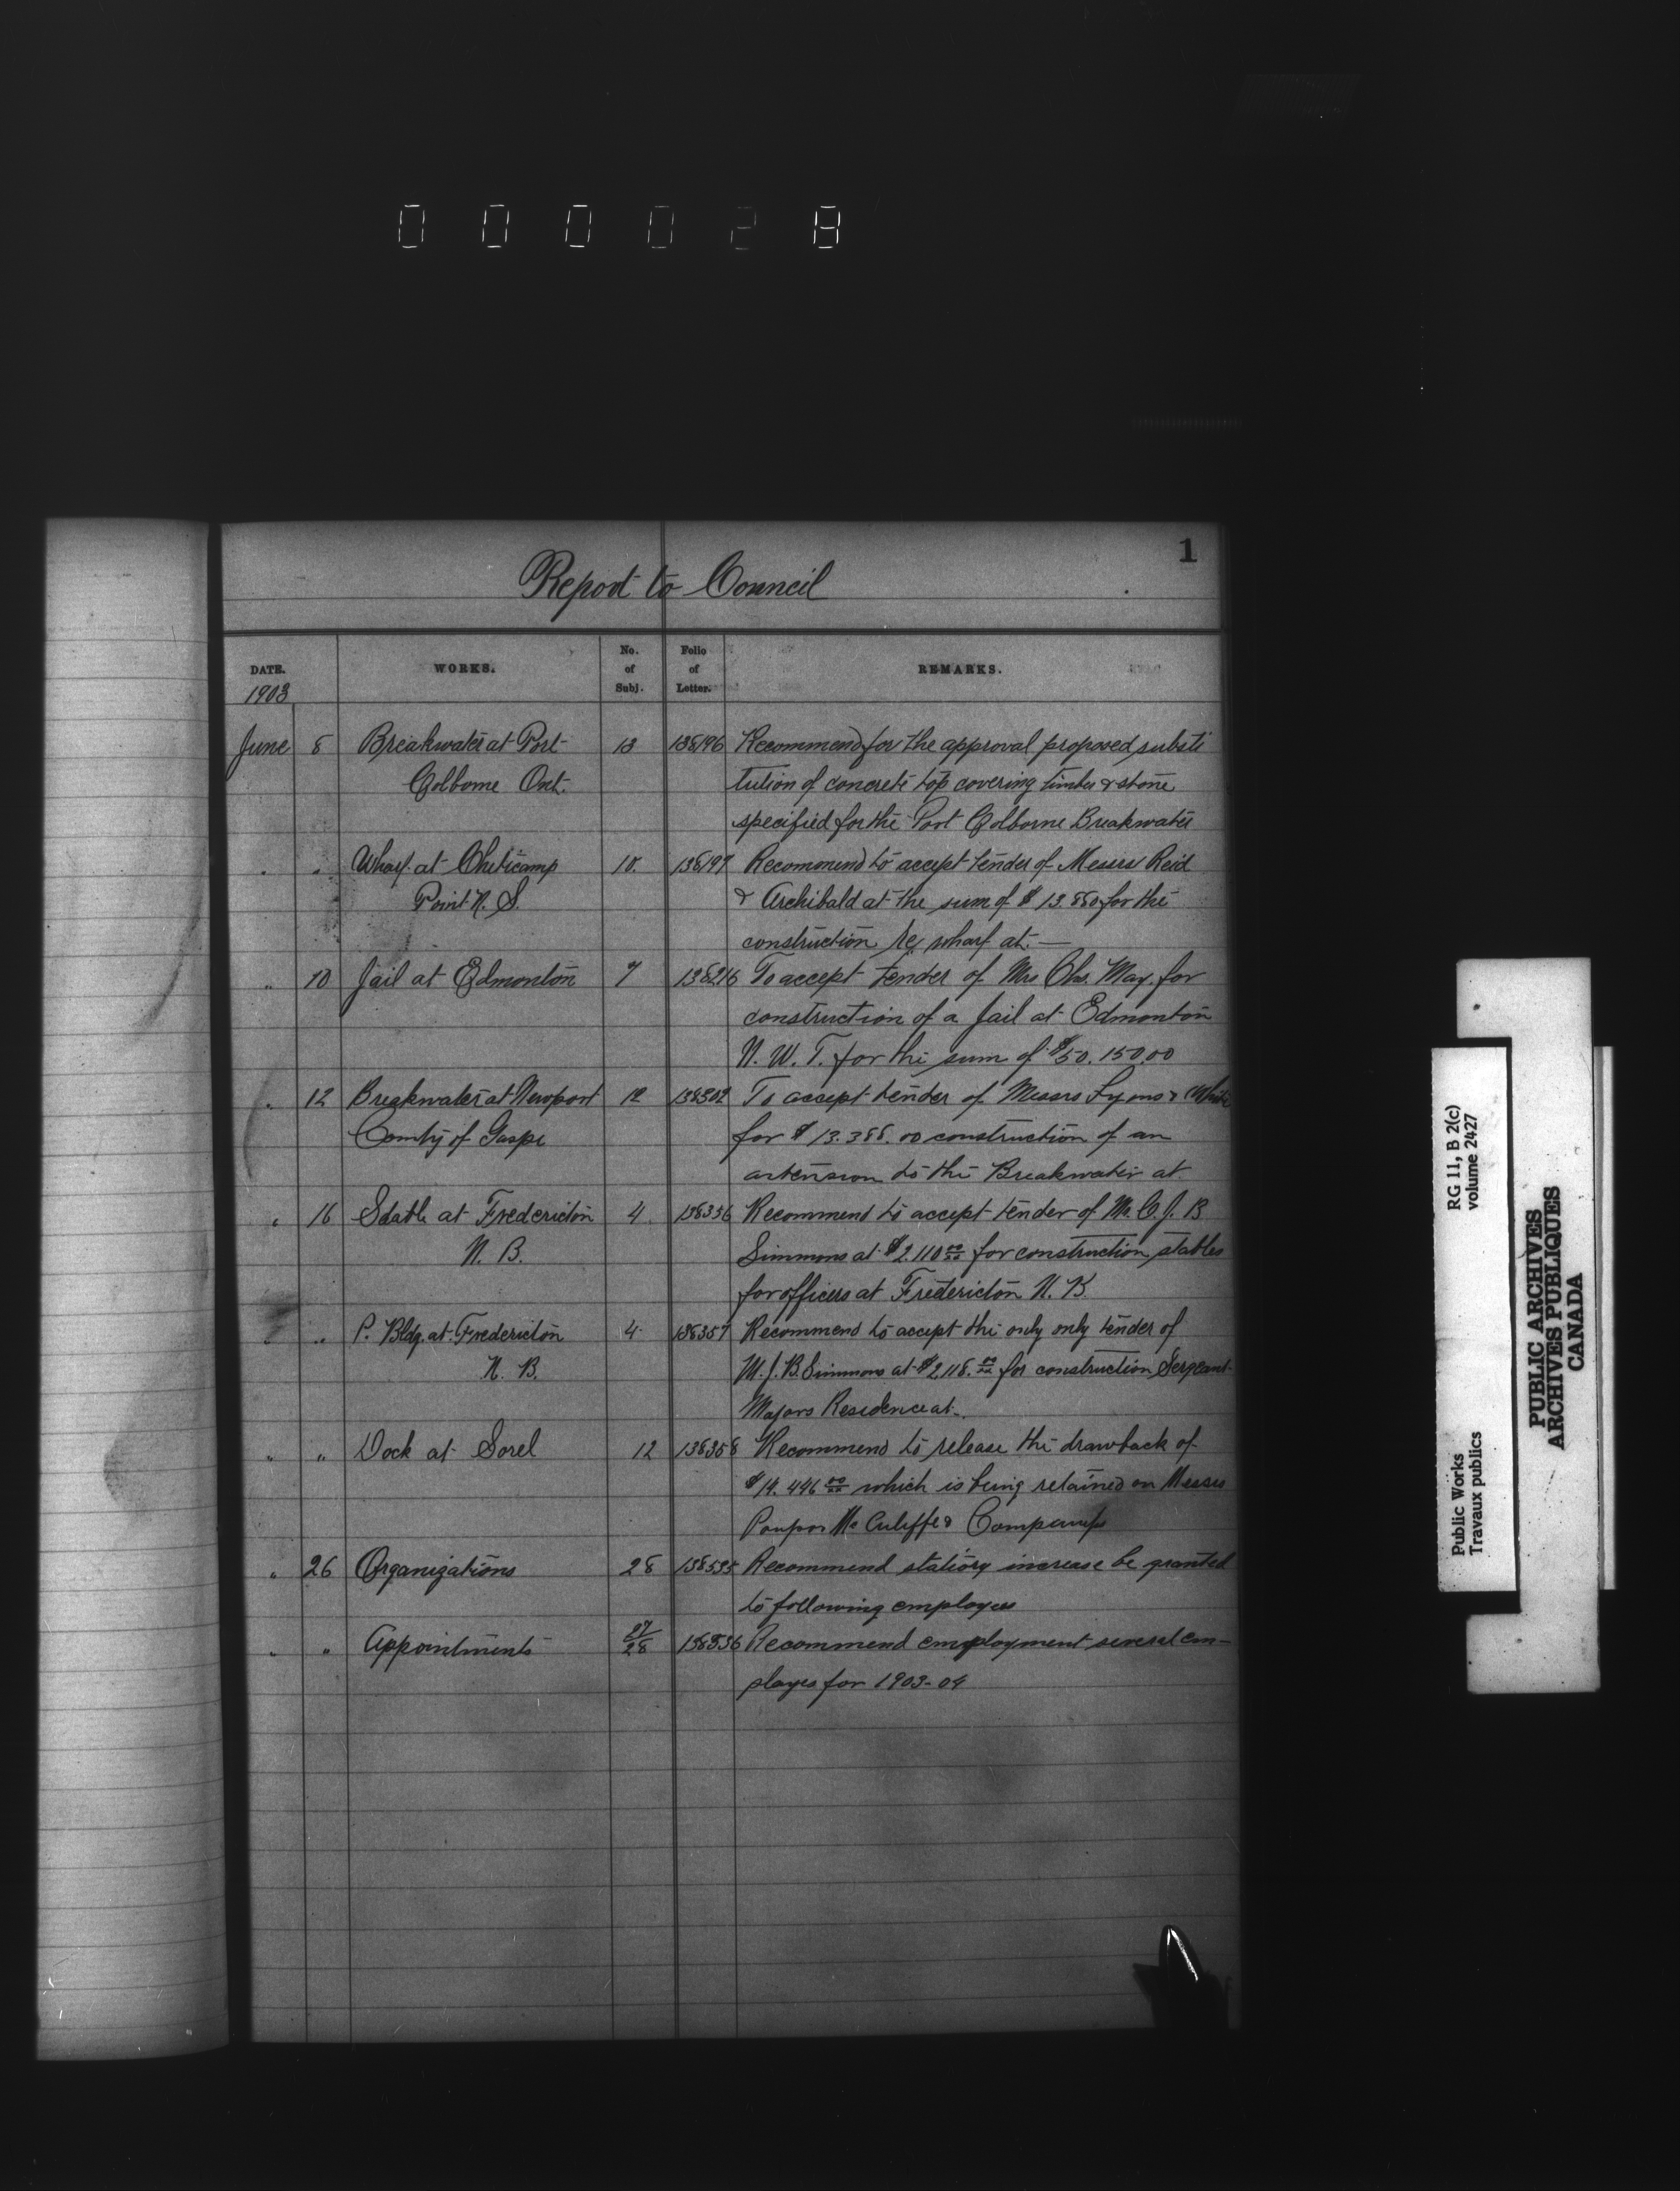 000028
1
Report to Council
DATE. WORKS. No. of Subj. Folio of Letter. REMARKS.
1903
June 8 Breakwater at Port 13 138196 Recommend for the approval proposed substi
Colborne Ont. tution of concrete top covering timber & stone
specified for the Port Colborne Breakwater
" " Wharf at Cheticamp 10. 138197 Recommend to accept tender of Messrs Reid
Point N. S. & Archibald at the sum of $ 13.880 for the
construction re wharf at.—
" 10 Jail at Edmonton 7 138216 To accept tender of Mrs Chs. May for
construction of a Jail at Edmonton
N. W. T. for the sum of $50.150.00
" 12 Breakwater at Newport 12 138302 To accept tender of Messrs Lyons & White
County of Gaspe for $ 13.388.00 construction of an
extension to the Breakwater at
" 16 Stable at Fredericton 4. 138356 Recommend to accept tender of Mr. C. J. B
N. B. Simmons at $2.110 00/xx for construction stables
for officers at Fredericton N. B.
" " P. Bldg. at Fredericton 4 138357 Recommend to accept the only only tender of
N. B. M. J. B. Simmons at $2,118. 00/xx for construction Sergeant
Majors Residence at.
" " Dock at Sorel 12 138358 Recommend to release the drawback of
$14.446 00/xx which is being retained on Messrs
& Company
" 26 Organizations 28 138535 Recommend statiory increase be granted
to following employees
" " Appointments 27/28 138536 Recommend employment several em-
ployes for 1903-04
RG 11, B 2(c)
volume 2427
Public Works
Travaux publics
PUBLIC ARCHIVES
ARCHIVES PUBLIQUES
CANADA